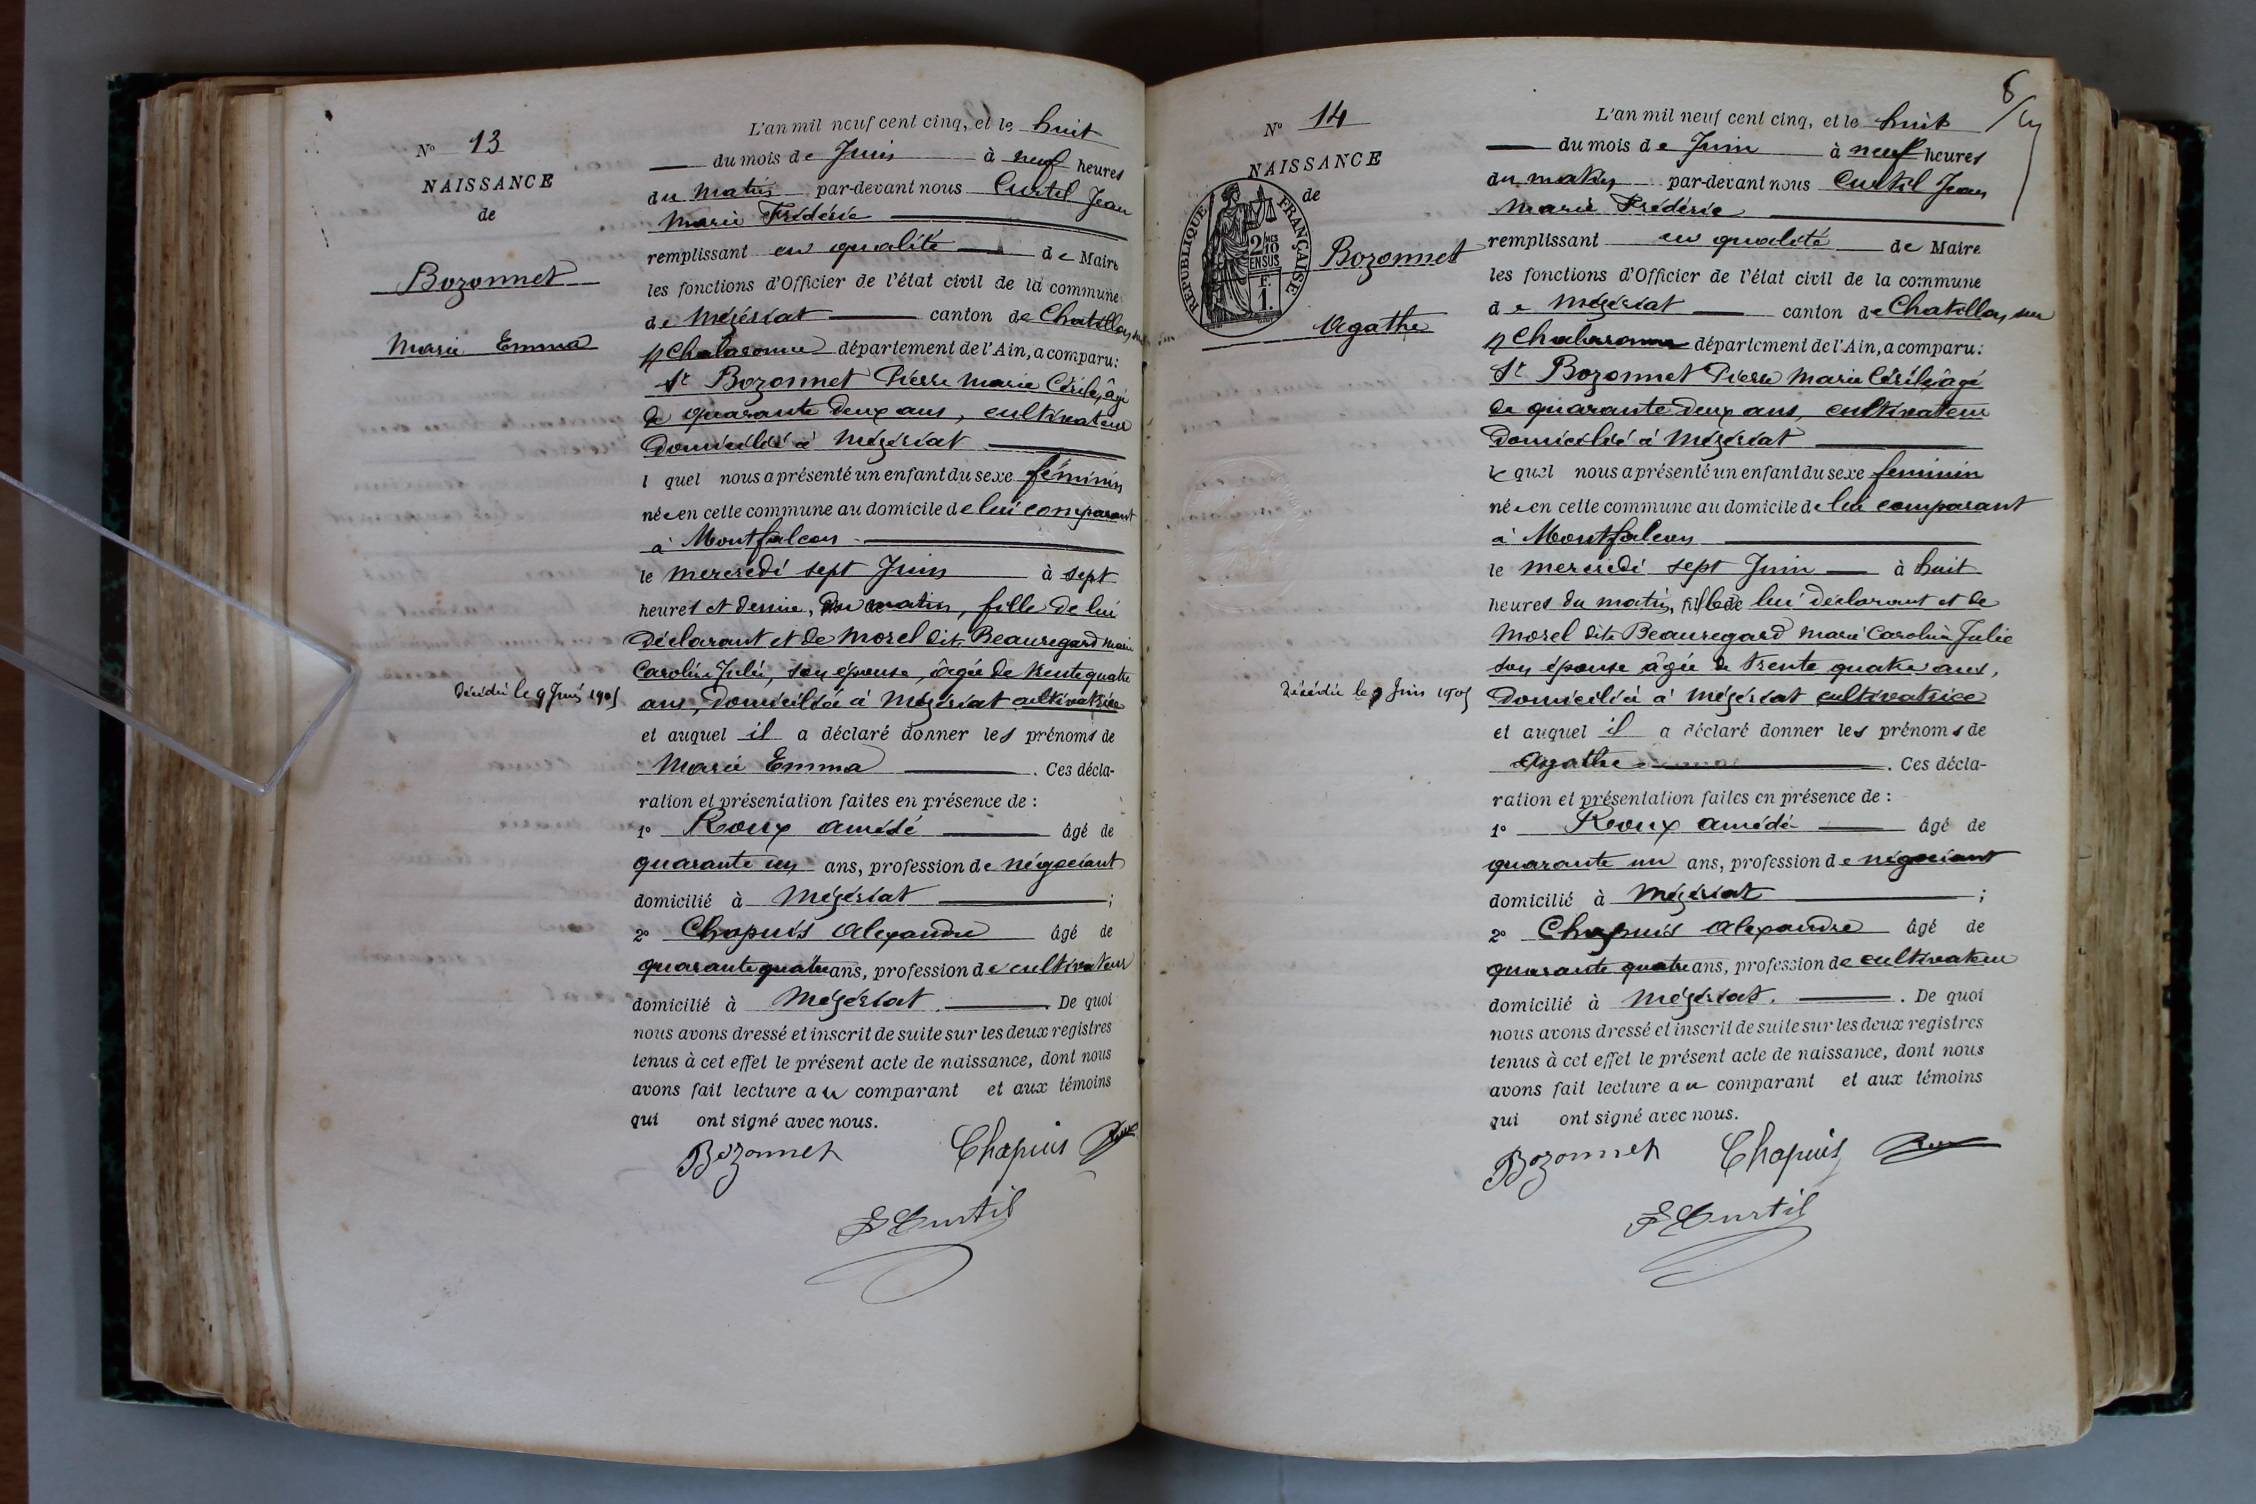 N° 13
NAISSANCE
de
Bozonnet
Marie Emma
Décédée le 9 Juin 1905
L'an mil neuf cent cinq, et le huit
du mois de Juin à neuf heures
du matin par-devant nous Curtil Jean
Marie Frédéric
remplissant en qualité de Maire
les fonctions d'Officier de l'état civil de la commune
de Mézériat canton de Chatillon sur
Chalaronne département de l'Ain, a comparu:
Sr Bozonnet Pierre Marie Cécile, âgé
de quarante deux ans, cultivateur
domicilié à Mézériat
l quel nous a présenté un enfant du sexe féminin
née en cette commune au domicile de lui comparant
à Montfalcon
le mercredi sept Juin à sept
heures et demie, du matin, fille de lui
déclarant et de Morel dit Beauregard Marie
Caroline Julie, son épouse, âgée de trente quatre
ans, domiciliée à Mézériat cultivatrice
et auquel il a déclaré donner les prénoms de
Marie Emma . Ces décla-
ration et présentation faites en présence de :
1° Roux Amédé âgé de
quarante un ans, profession de négociant
domicilié à Mézériat ;
2° Chapuis Alexandre âgé de
quarante quatre ans, profession de cultivateur
domicilié à Mézériat . De quoi
nous avons dressé et inscrit de suite sur les deux registres
tenus à cet effet le présent acte de naissance, dont nous
avons fait lecture au comparant et aux témoins
qui ont signé avec nous.
Bozonnet Chapuis Roux
F Curtil
8
N° 14
NAISSANCE
de
RÉPUBLIQUE FRANÇAISE
2/10 MES
EN SUS
F.
1.
Bozonnet
Agathe
Décédée le 9 Juin 1905
L'an mil neuf cent cinq, et le huit
du mois de Juin à neuf heures
du matin par-devant nous Curtil Jean
Marie Frédéric
remplissant en qualité de Maire
les fonctions d'Officier de l'état civil de la commune
de Mézériat canton de Chatillon sur
Chalaronne département de l'Ain, a comparu:
Sr Bozonnet Pierre Marie Cécile, âgé
de quarante deux ans, cultivateur
domicilié à Mézériat
le quel nous a présenté un enfant du sexe feminin
née en cette commune au domicile de lui comparant
à Montfalcon
le mercredi sept Juin à huit
heures du matin, fille de lui déclarant et de
Morel dite Beauregard Marie Caroline Julie
son épouse âgée de trente quatre ans,
domiciliée à Mézériat cultivatrice
et auquel il a déclaré donner les prénoms de
Agathe . Ces décla-
ration et présentation faites en présence de :
1° Roux Amédé âgé de
quarante un ans, profession de négociant
domicilié à Mézériat ;
2° Chapuis Alexandre âgé de
quarante quatre ans, profession de cultivateur
domicilié à Mézériat. . De quoi
nous avons dressé et inscrit de suite sur les deux registres
tenus à cet effet le présent acte de naissance, dont nous
avons fait lecture au comparant et aux témoins
qui ont signé avec nous.
Bozonnet Chapuis Roux
F Curtil